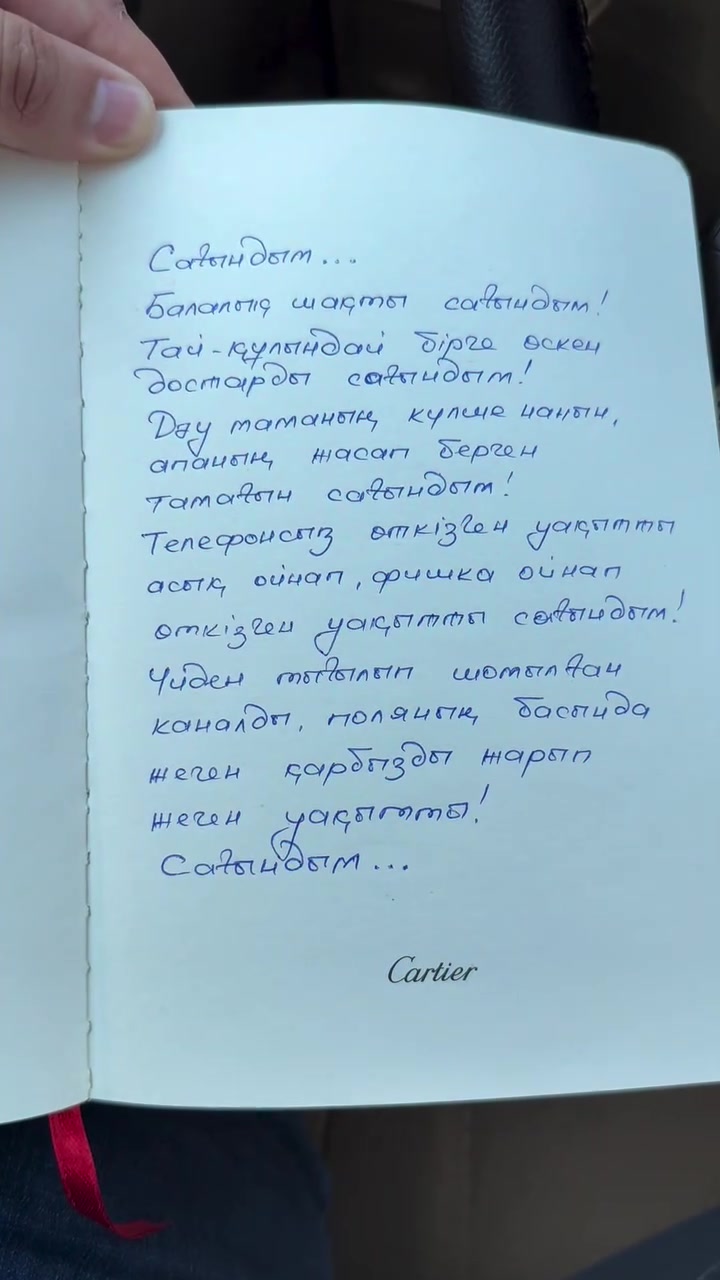 Сағындым...
Балалық шақты сағындым!
Тай-құлындай бірге өскен
достарды сағындым!
Дәу таманың күлше нанын,
апаның жасап берген
тамағын сағындым!
Телефонсыз өткізген уақытты
асық ойнап, фишка ойнап
өткізген уақытты сағындым!
Үйден тығылып шомылған
каналды, поляның басында
жеген қарбызды жарып
жеген уақытты!
Сағындым...
Cartier